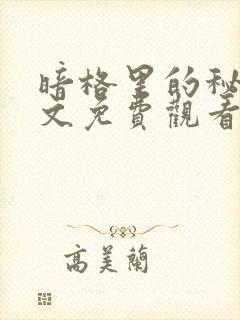 暗格里的秘
文免費觀看
高美蘭